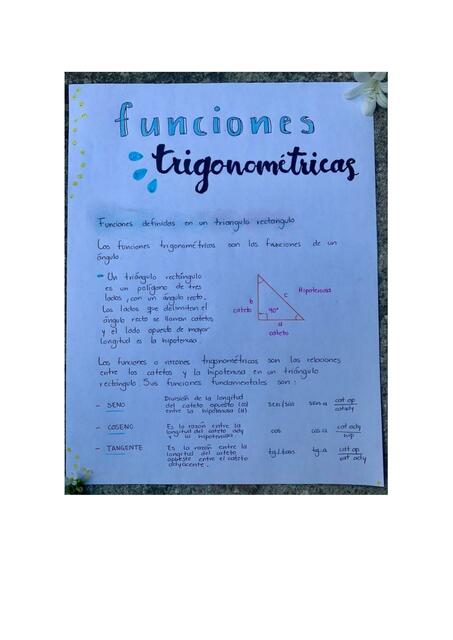 funciones
trigonométricas
Funciones definidas en un triangulo rectangulo
Las funciones trigonométricas son las funciones de un
ángulo.
- Un triángulo rectángulo
es un polígono de tres
lados, con un ángulo recto.
Los lados que delimitan el
ángulo recto se llaman catetos
y el lado opuesto de mayor
longitud es la hipotenusa.
b
cateto
c
Hipotenusa
90°
a
cateto
Las funciones o razones trigonométricas son las relaciones
entre los catetos y la hipotenusa en un triángulo
rectángulo. Sus funciones fundamentales son:
- SENO
División de la longitud
del cateto opuesto (co)
entre la hipotenusa (H)
sen/sin
sen a
cat op
- COSENO
Es la razón entre la
longitud del cateto ady
y la hipotenusa.
cos
cos a
cat ady
hip
- TANGENTE
Es la razón entre la
longitud del cateto
entre el cateto
adyacente.
tg/tan
tg a
cat op
cat ady